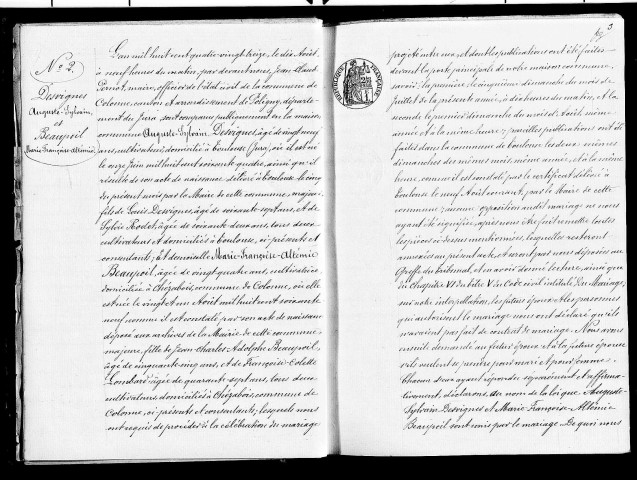 N° 2.
Desvignes
Auguste-Sylvain,
et
Beaupoil
Marie-Françoise-Altémie
L'an mil huit cent quatre-vingt treize, le dix Août,
à neuf heures du matin, par devant nous, Jean-Claude
Pernot, maire, officier de l'état civil de la commune de
Colonne, canton et arrondissement de Poligny, départe-
ment du Jura, sont comparus publiquement en la maison
commune Auguste-Sylvain Desvignes, âgé de vingt neuf
ans, cultivateur, domicilié à Toulouse (Jura), où il est né
le onze Juin mil huit cent soixante quatre, ainsi qu'il
résulte de son acte de naissance délivré à Toulouse le cinq
du présent mois par la Mairie de cette commune, majeur,
fils de Louis Desvignes, âgé de soixante sept ans, et de
Sylvie Rodet, âgée de soixante-deux ans, tous deux
cultivateurs et domiciliés à Toulouse, ci-présents et
consentants; Et demoiselle Marie-Françoise-Altémie
Beaupoil, âgée de vingt quatre ans, cultivatrice
domiciliée à Chézabois, commune de Colonne, où elle
est née le vingt un Août mil huit cent soixante
neuf, comme il est constaté par son acte de naissance
déposé aux archives de la Mairie de cette commune,
majeure, fille de Jean-Charles-Adolphe Beaupoil,
âgé de cinquante cinq ans, et de Françoise-Colette
Lombard, âgée de quarante-sept ans, tous deux
cultivateurs domiciliés à Chézabois, commune de
Colonne, ci-présents et consentants; lesquels nous
ont requis de procéder à la célébration du mariage
3
projeté entre eux et dont les publications ont été faites
devant la porte principale de notre maison commune,
savoir: la première le cinquième dimanche du mois de
Juillet de la présente année, à dix heures du matin, et la
seconde le premier dimanche du mois d'Août, même
année et à la même heure; pareilles publications ont été
faites dans la commune de Toulouse les deux mêmes
dimanches des mêmes mois, même année, et à la même
heure, comme il est constaté par le certificat délivré à
Toulouse le neuf Août courant, par le Maire de cette
commune; aucune opposition audit mariage ne nous
ayant été signifiée, après nous être fait remettre toutes
les pièces ci-dessus mentionnées, lesquelles resteront
annexées au présent acte, et seront par nous déposées au
Greffe du tribunal, et en avoir donné lecture, ainsi que
du Chapitre VI du titre V du Code civil intitulé Du Mariage,
sur notre interpellation, les futurs époux et les personnes
qui autorisent le mariage nous ont déclaré qu'ils
n'avaient pas fait de contrat de mariage. Nous avons
ensuite demandé au futur époux et à la future épouse
s'ils veulent se prendre pour mari et pour femme.
Chacun d'eux ayant répondu séparément et affirma-
tivement, déclarons, au nom de la loi que Auguste-
Sylvain Desvignes et Marie-Françoise-Altémie
Beaupoil sont unis par le mariage. De quoi nous